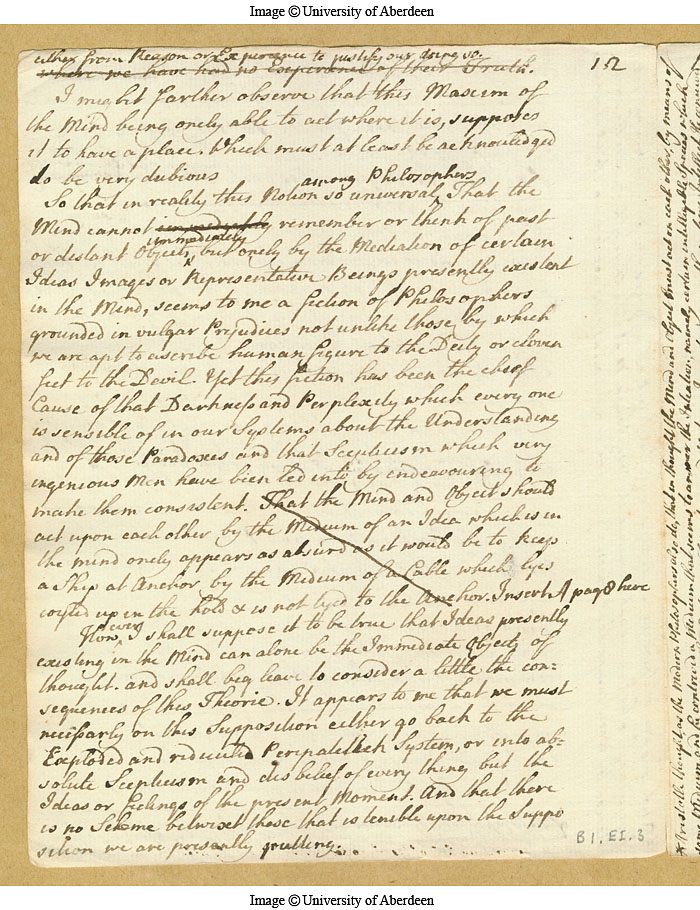 Image © University of Aberdeen
12
either from Reason or Experience to justify our doing so.
where we have had no Experience of their Truth.
I might farther observe that this Maxim of
the Mind being onely able to act where it is, supposes
it to have a place. Which must at least be acknowledged
to be very dubious
among Philosophers
So that in reality this Notion so universal, That the
Mind cannot immediately remember or think of past
immediately
or distant Objects, but onely by the Mediation of certain
Ideas Images or Representative Beings presently existent
in the Mind, seems to me a fiction of Philosophers
grounded in vulgar Prejudices not unlike those by which
we are apt to ascribe human figure to the Deity or cloven
feet to the Devil. Yet this fiction has been the cheif
Cause of that Darkness and Perplexity which every one
is sensible of in our Systems about the Understanding
and of those Paradoxes and that Scepticism which very
ingenious Men have been led into by endeavouring to
make them consistent. That the Mind and Object should
act upon each other by the Medium of an Idea which is in
the mind onely appears as absurd as it would be to keep
a Ship at Anchor by the Medium of a Cable which lyes
coyled up in the hold & is not tyed to the Anchor. Insert A pag 8 here
However I shall suppose it to be true that Ideas presently
existing in the Mind can alone be the Immediate Objects of
thought. and shall beg leave to consider a little the con=
sequences of this Theorie. It appears to me that we must
necessarly on this Supposition either go back to the
Exploded and ridiculed Peripatetick System, or into ab=
solute Scepticism and disbelief of every thing but the
Ideas or feelings of the present Moment. And that there
is no Scheme betwixt these that is tenible upon the Suppo
sition we are presently putting.
B1.EI.3
Image © University of Aberdeen